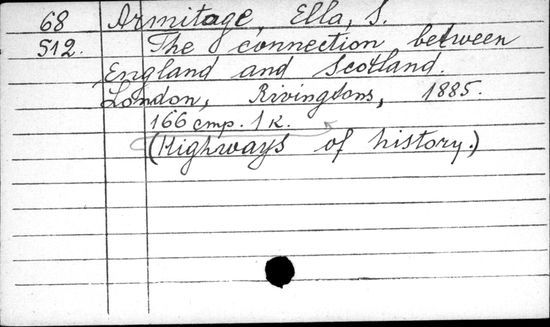 68 Armitage, Ella, S.
512. The connection between
England and Scotland.
London, Rivingtons, 1885.
166 стр. 1 к.
(Highways of history.)